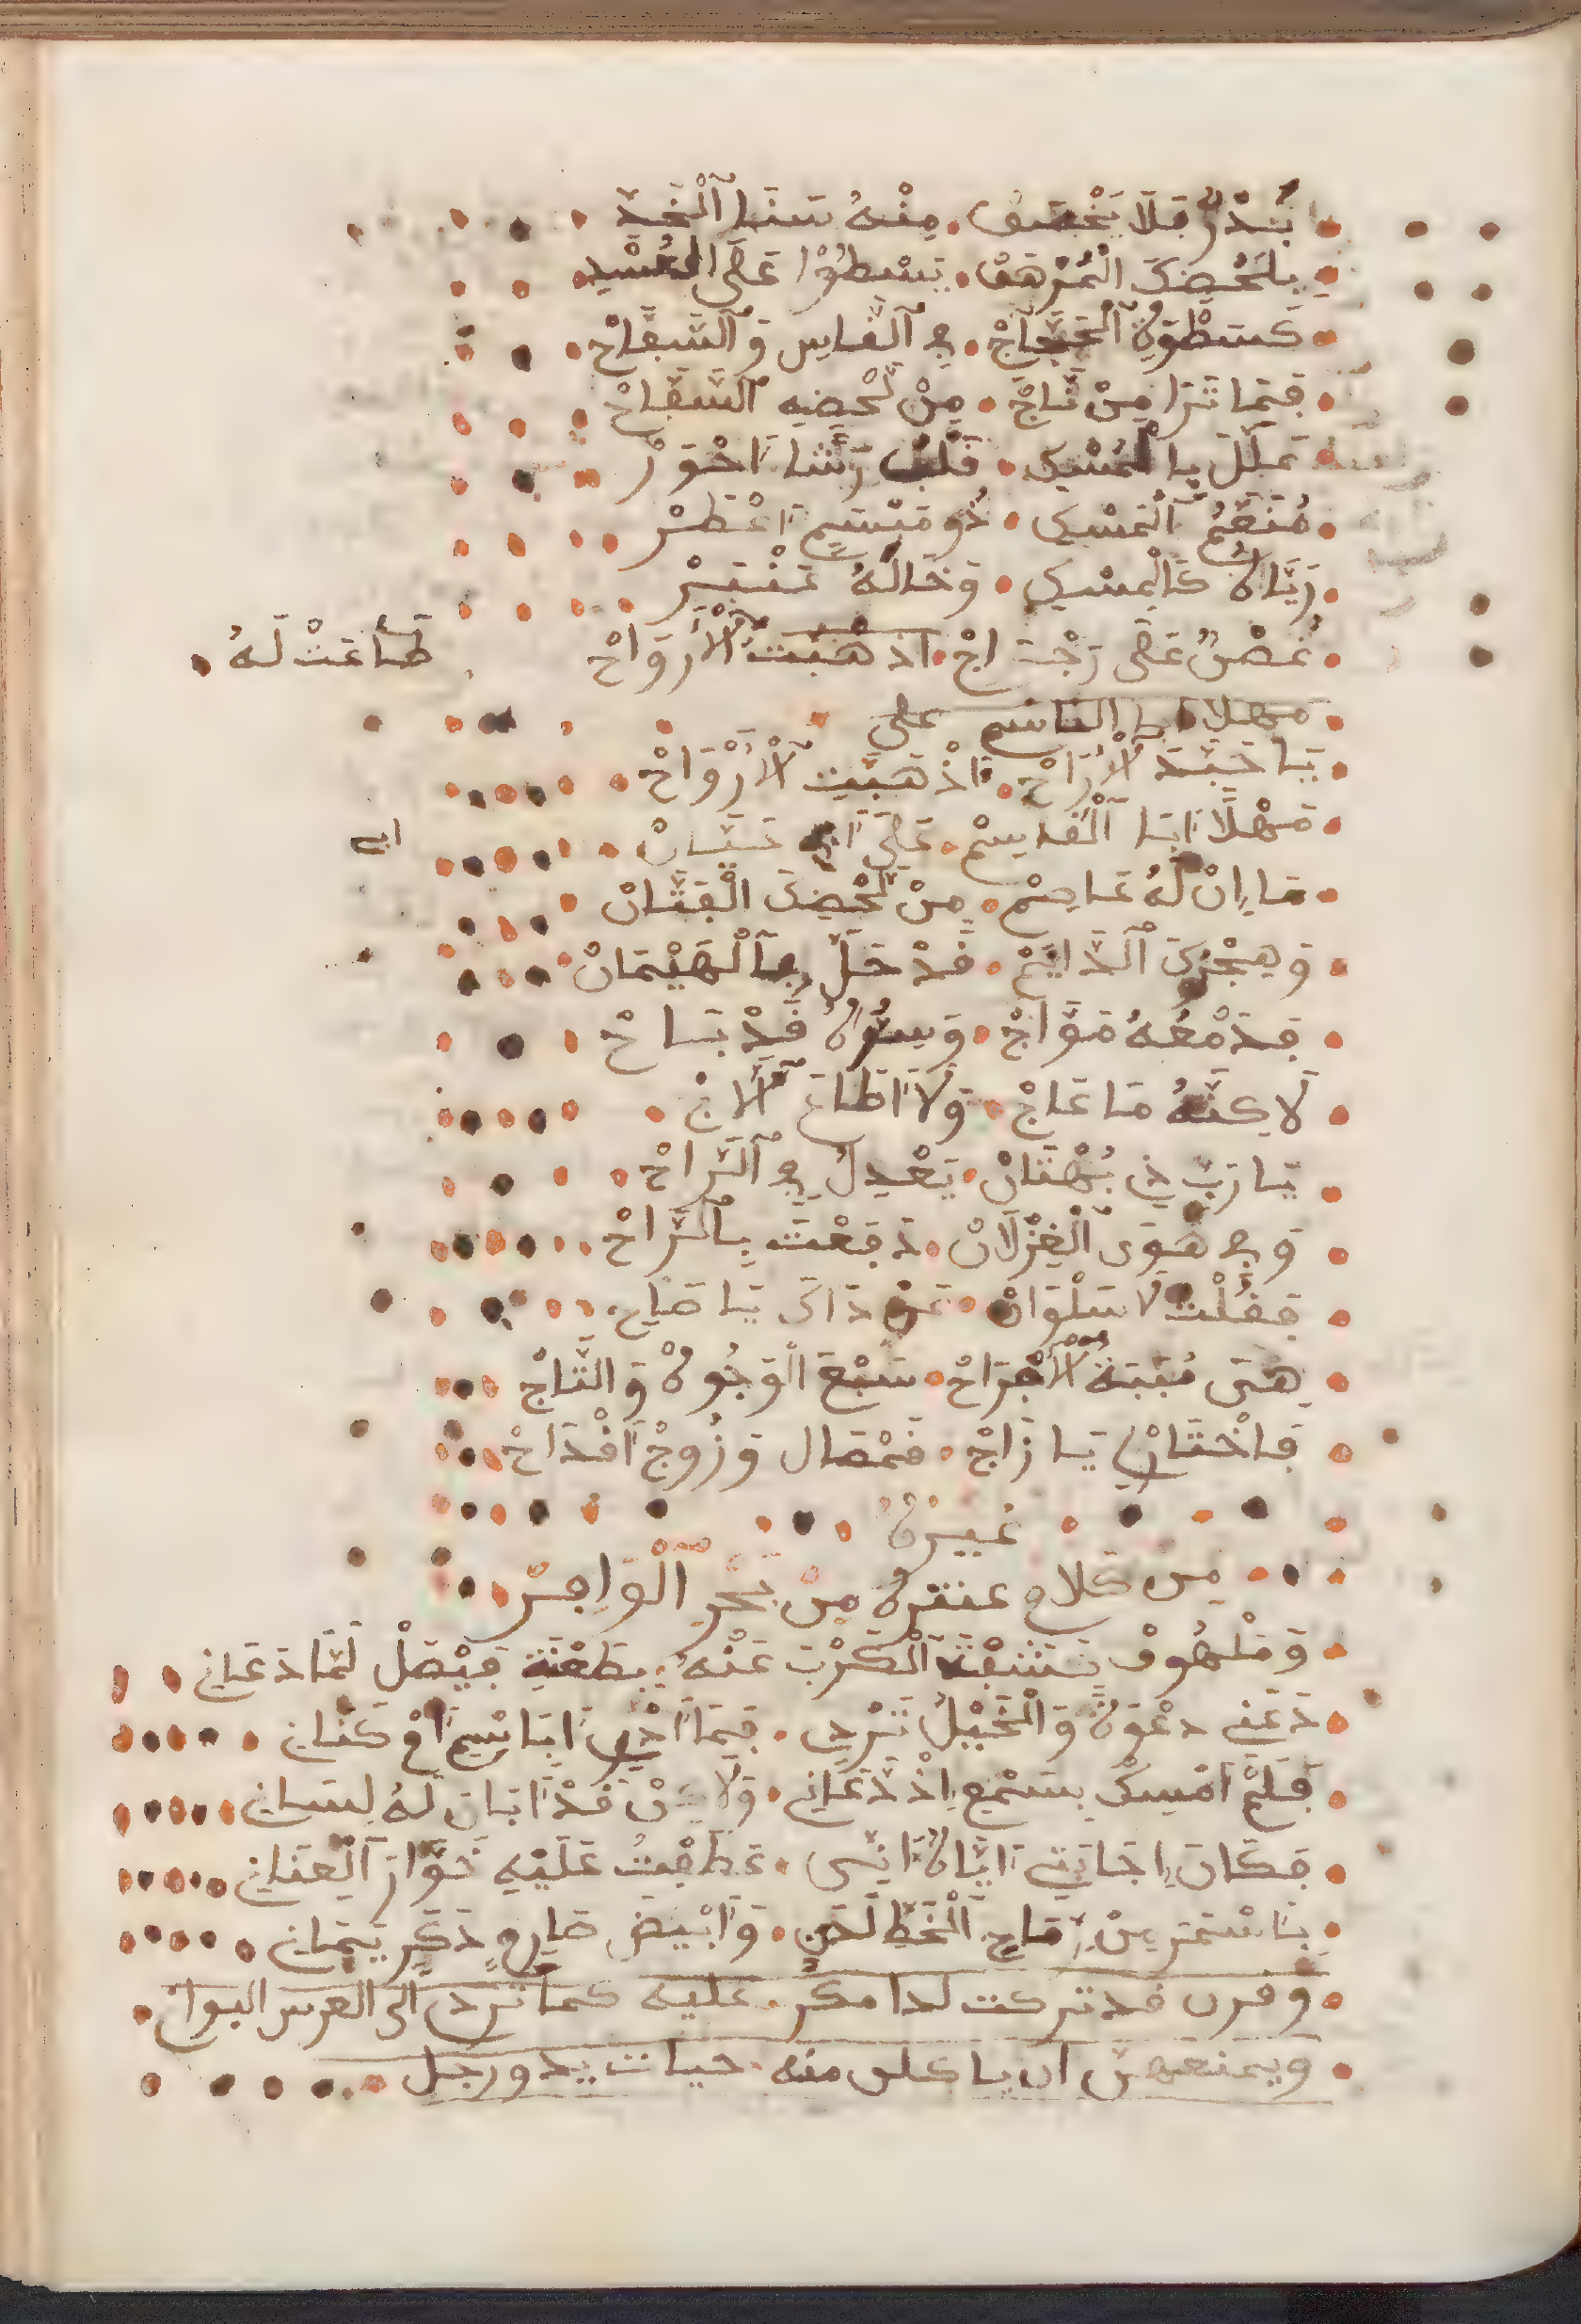 بَدْرٌ فَلَا يَخْصِف . مِنْهُ سَنَا الْخَدِّ
بِلَحْضِكَ الْمُرْهَفْ . يَسْطُوا عَلَى الْأُسْدِ
كَسَطْوَةِ الْحَجَّاجْ . فِي النَّاسِ وَالسَّفَّاحْ
فَمَا تَرَا مِنْ نَاجْ . مِنْ لَحْضِهِ السَّفَّاحْ
عَلَّلَ بِالْمُسْكِ . قَلْبِي رَشَا أَحْوَرْ
مُنَعَّمُ الْمَسْكِ . ذُو مَبْسَمٍ أَعْطَرْ
رَيَّاهُ كَالْمِسْكِ . وَخَالُهُ عَنْبَرْ
غُصْنٌ عَلَى رَجْرَاجْ . اذْ هَبَّتْ الْأَرْوَاحْ طَاعَتْ لَهُ
مهلا ابا القاسم على
يَا حَبَّذَ الْأَرَاجْ . اذْ هَبَّتِ الْأَرْوَاحْ
مَهْلًا أَبَا الْقَاسِمْ . عَلَى أَبِي حَيَّانْ ابي
مَا إِنْ لَهُ عَاصِمْ . مِنْ لَحْضِكَ الْفَتَّانْ
وَهِجْرِكَ الدَّايِمْ . قَدْ حَلَّ بِالْهَيْمَانْ
فَدَمْعُهُ مَوَّاجْ . وَسِرُّهُ قَدْ بَاحْ
لَاكِنَّهُ مَا عَاجْ . وَلَا أَطَاعَ اللَّاحْ
يَا رَبَّ ذِي بُهْتَانْ . يَعْدِلُ فِي الرَّاحْ
وَفِي هَوَى الْغِزْلَانْ . دَفَعْتُ بِالرَّاحْ
فَقُلْتُ لَا سَلْوَانْ . عَنْ ذَاكَ يَا صَاحِ
سَبْعَ الْوُجُوهْ وَالتَّاجْ . هِيَ مُنْيَةُ الْأَفْرَاحْ
فَاخْتَارْ لِي يَا زَاجْ . قَمْصَال وَزُوجْ أَقْدَاحْ
غيره
مِن كَلَامِ عنتره مِنْ بَحْرِ الْوَافِرْ
وَمَلْهُوفٍ كَشَفْتُ الْكَرْبَ عَنْهُ . بِطَعْنَةِ فَيْصَلْ لَمَّا دَعَانِ
دَعَنِي دَعْوَةً وَالْخَيْلُ تَرْدِي . فَمَا أَدْرِي أَبِاسْمِ أَمْ كَنَانِ
فَلَمْ أَمْسِكْ بِسَمْعِ إِذْ دَعَانِي . وَلَاكِنْ قَدْ أَبَانَ لَهُ لِسَانِ
فَكَانَ إِجَابَتِي إِيَّاهُ أَنِّي . عَطَفْتُ عَلَيْهِ خَوَّارَ الْعِنَانِ
بِأَسْمَرَ مِنْ رِمَاحِ الْخَطِّ لَدْنٍ . وَأَبْيَضَ صَارِمٍ ذَكَرٍ يَمَانِ
وقرن قد تركت لدا مكرٍّ . عليه كما تردى الى العرس البوان
ويمنعهن ان ياكلن منه . حيات يد ورجل